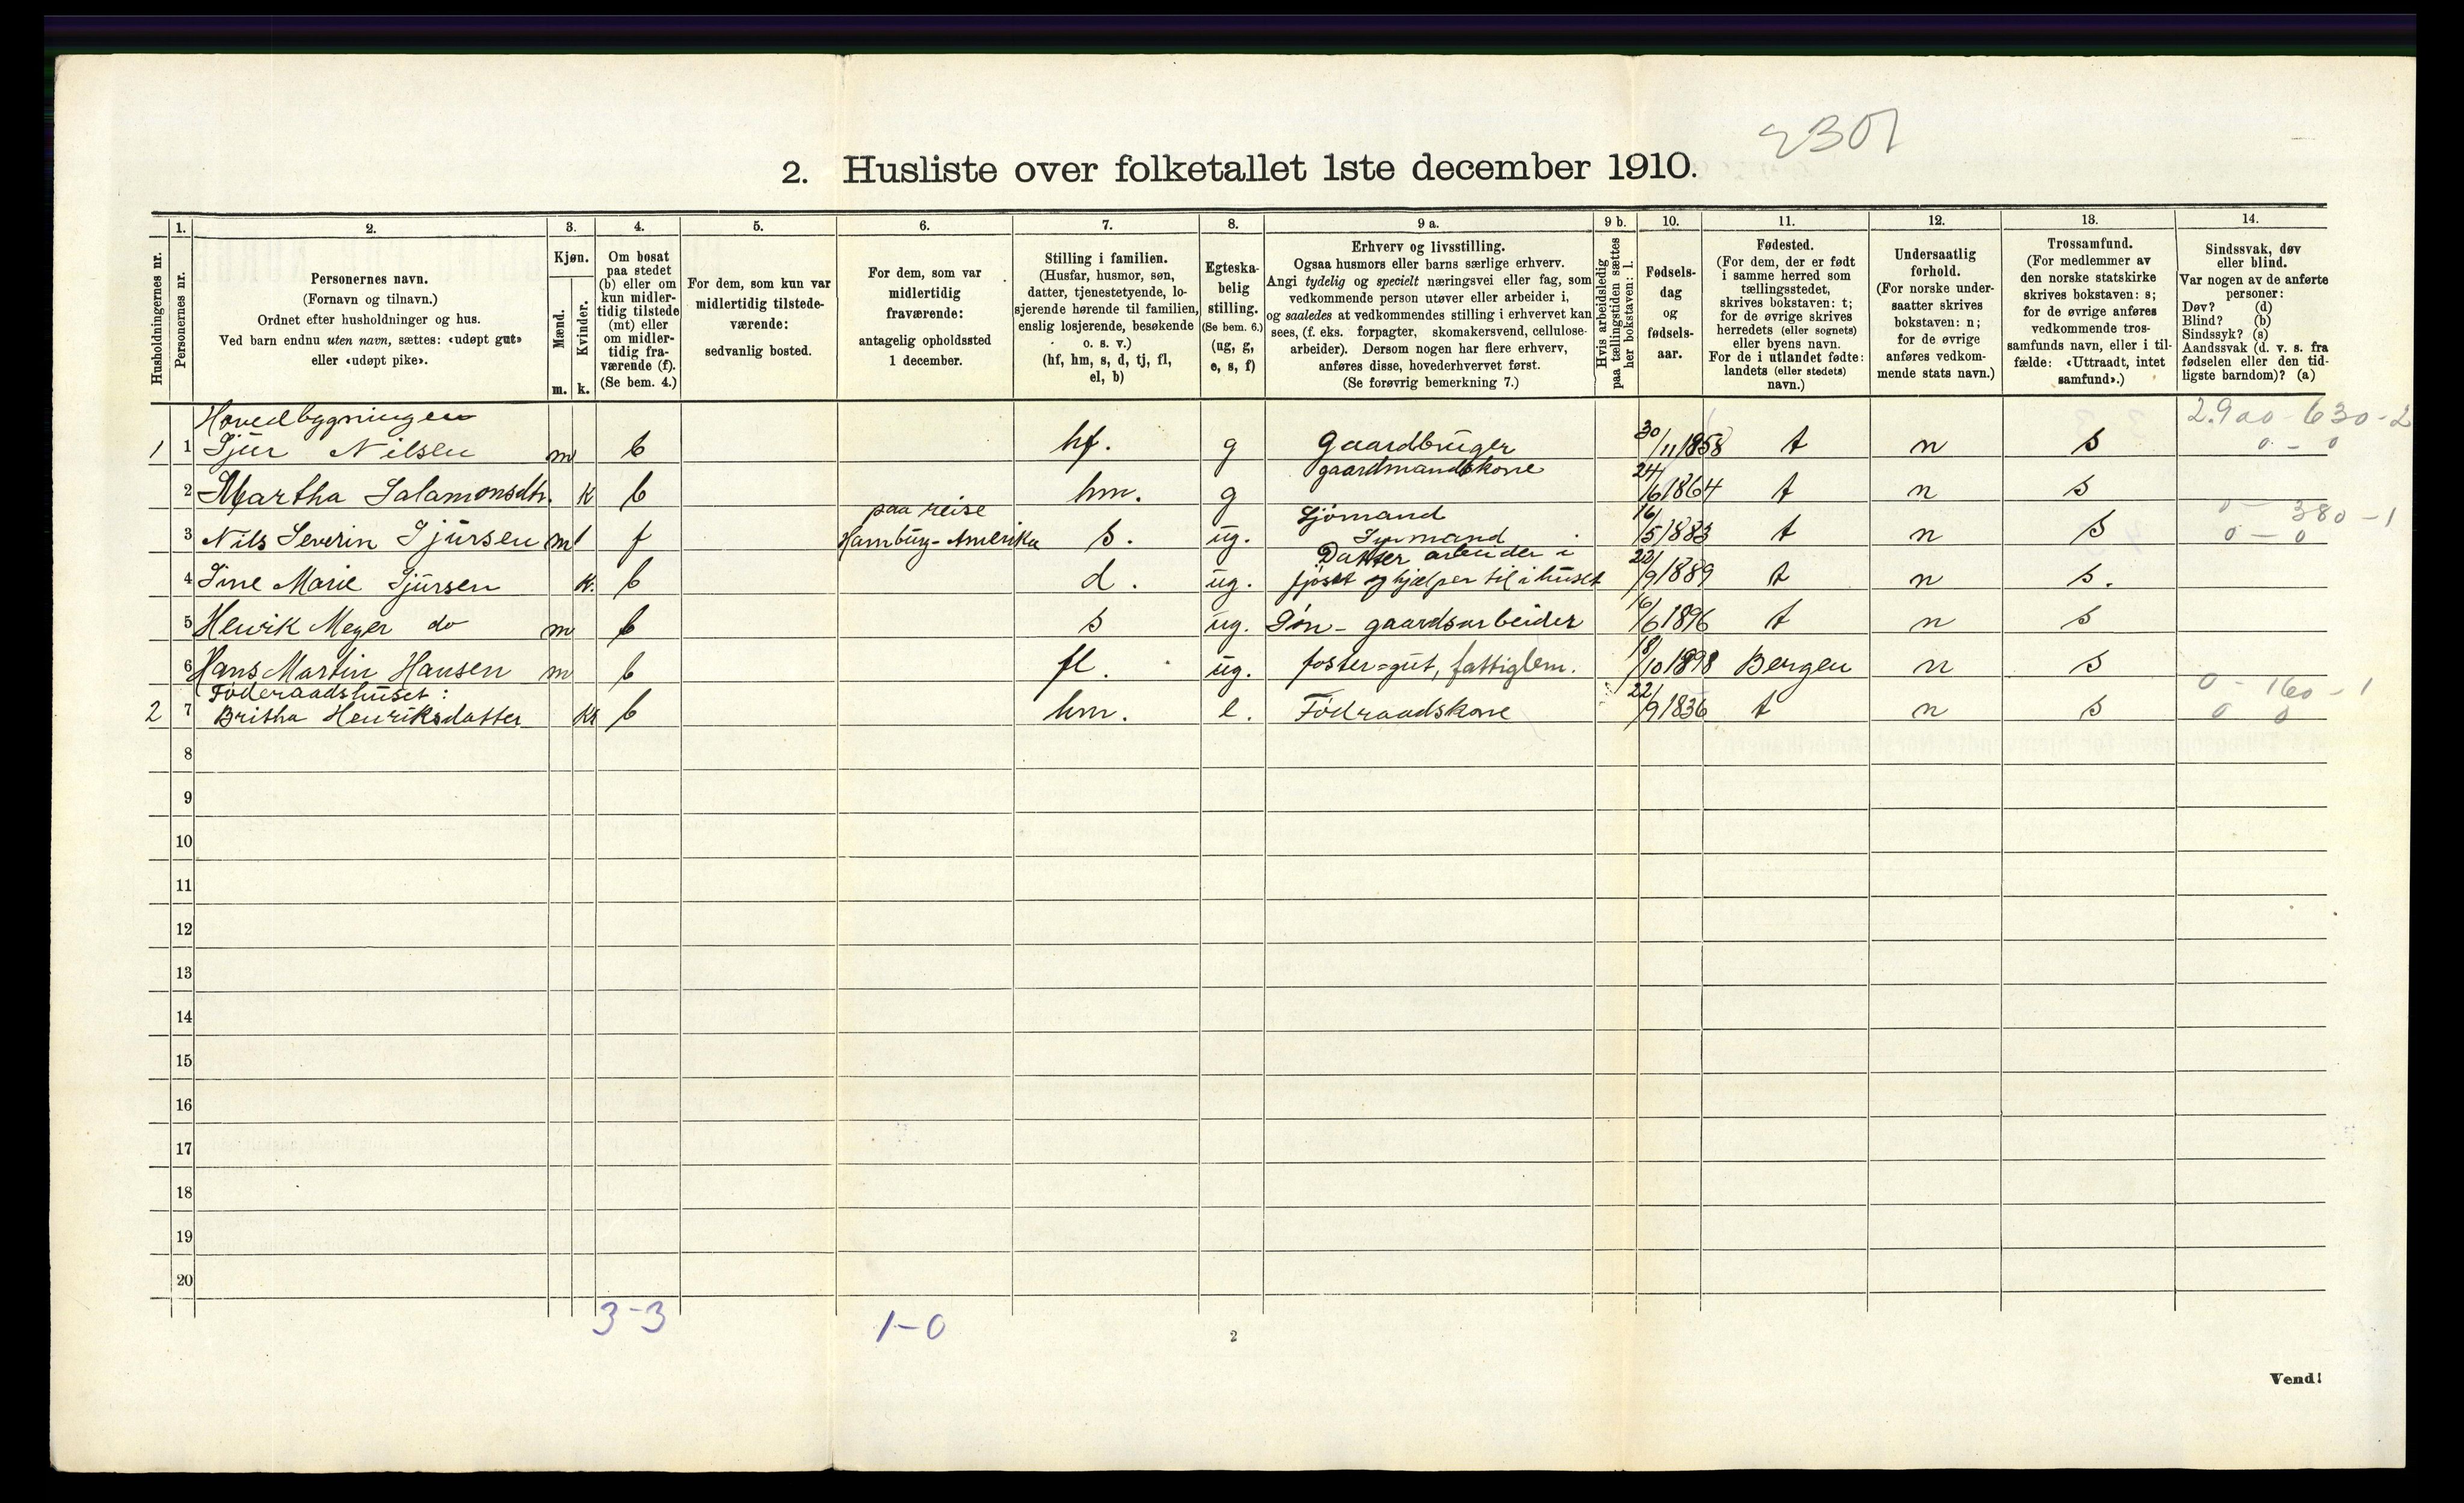 2301
2. Husliste over folketallet 1ste december 1910.
Husholdningernes nr.
1. Personernes nr.
2. Personernes navn. (Fornavn og tilnavn.) Ordnet efter husholdninger og hus. Ved barn endnu uten navn, sættes: «udøpt gut» eller «udøpt pike».
3. Kjøn. Mænd. m. Kvinder. k.
4. Om bosat paa stedet (b) eller om kun midler-tidig tilstede (mt) eller om midler-tidig fra-værende (f). (Se bem. 4.)
5. For dem, som kun var midlertidig tilstede-værende: sedvanlig bosted.
6. For dem, som var midlertidig fraværende: antagelig opholdssted 1 december.
7. Stilling i familien. (Husfar, husmor, søn, datter, tjenestetyende, lo-sjerende hørende til familien, enslig losjerende, besøkende o. s. v.) (hf, hm, s, d, tj, fl, el, b)
8. Egteska-belig stilling. (Se bem. 6.) (ug, g, e, s, f)
9 a. Erhverv og livsstilling. Ogsaa husmors eller barns særlige erhverv. Angi tydelig og specielt næringsvei eller fag, som vedkommende person utøver eller arbeider i, og saaledes at vedkommendes stilling i erhvervet kan sees, (f. eks. forpagter, skomakersvend, cellulose-arbeider). Dersom nogen har flere erhverv, anføres disse, hovederhvervet først. (Se forøvrig bemerkning 7.)
9 b. Hvis arbeidsledig paa tællingstiden sættes her bokstaven: l.
10. Fødsels-dag og fødsels-aar.
11. Fødested. (For dem, der er født i samme herred som tællingsstedet, skrives bokstaven: t; for de øvrige skrives herredets (eller sognets) eller byens navn. For de i utlandet fødte: landets (eller stedets) navn.)
12. Undersaatlig forhold. (For norske under-saatter skrives bokstaven: n; for de øvrige anføres vedkom-mende stats navn.)
13. Trossamfund. (For medlemmer av den norske statskirke skrives bokstaven: s; for de øvrige anføres vedkommende tros-samfunds navn, eller i til-fælde: «Uttraadt, intet samfund».)
14. Sindssvak, døv eller blind. Var nogen av de anførte personer: Døv? (d) Blind? (b) Sindssyk? (s) Aandssvak (d. v. s. fra fødselen eller den tid-ligste barndom)? (a)
Hovedbygningen 2.900 - 630 - 2
1 1 Sjur Nilsen m b hf. g Gaardbruger 30/11 1858 t n s 0 - 0
2 Martha Salamonsdtr. k b hm. g gaardmandskone 24/6 1864 t n s
paa reise Sjømand 0 - 380 - 1
3 Nils Severin Sjursen m f Hamburg-Amerika s. ug. Syrmand 16/5 1883 t n s 0 - 0
Datter arbeider i
4 Sine Marie Sjursen k. b d. ug. fjøset og hjælper til i huset 22/9 1889 t n s.
5 Henrik Meyer do m b s ug. Søn - gaardsarbeider 16/6 1896 t n s
6 Hans Martin Hansen m b fl. ug. foster=gut, fattiglem. 18/10 1898 Bergen n s
Føderaadshuset: 0 - 160 - 1
2 7 Britha Henriksdatter k b hm. e. Fødraadskone 22/9 1836 t n s 0 0
8
9
10
11
12
13
14
15
16
17
18
19
20
3-3 1-0
2
Vend!